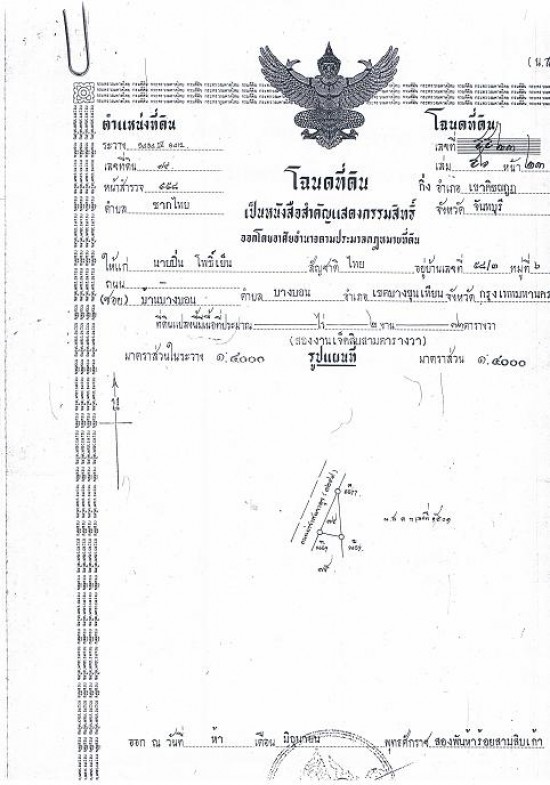 (น.ส
ตำแหน่งที่ดิน
โฉนดที่ดิน
ระวาง
เลขที่
เลขที่ดิน ๗๕
เล่ม ๕๑ หน้า ๒๓
หน้าสำรวจ ๕๕๘
โฉนดที่ดิน
กิ่ง อำเภอ เขาคิชฌกูฏ
ตำบล ชากไทย
เป็นหนังสือสำคัญแสดงกรรมสิทธิ์
จังหวัด จันทบุรี
ออกโดยอาศัยอำนาจตามประมวลกฎหมายที่ดิน
ให้แก่ นายปิ่น โพธิ์เย็น สัญชาติ ไทย อยู่บ้านเลขที่ ๕๘/๓ หมู่ที่ ๖
ถนน
(ซอย) บ้านบางบอน ตำบล บางบอน อำเภอ เขตบางขุนเทียน จังหวัด กรุงเทพมหานคร
ที่ดินแปลงนี้มีเนื้อที่ประมาณ ไร่ ๒ งาน ๗๓ ตารางวา
(สองงานเจ็ดสิบสามตารางวา)
มาตราส่วนในระวาง ๑:๔๐๐๐ รูปแผนที่ มาตราส่วน ๑:๔๐๐๐
น
๗๕
ออก ณ วันที่ ห้า เดือน มิถุนายน พุทธศักราช สองพันห้าร้อยสามสิบเก้า